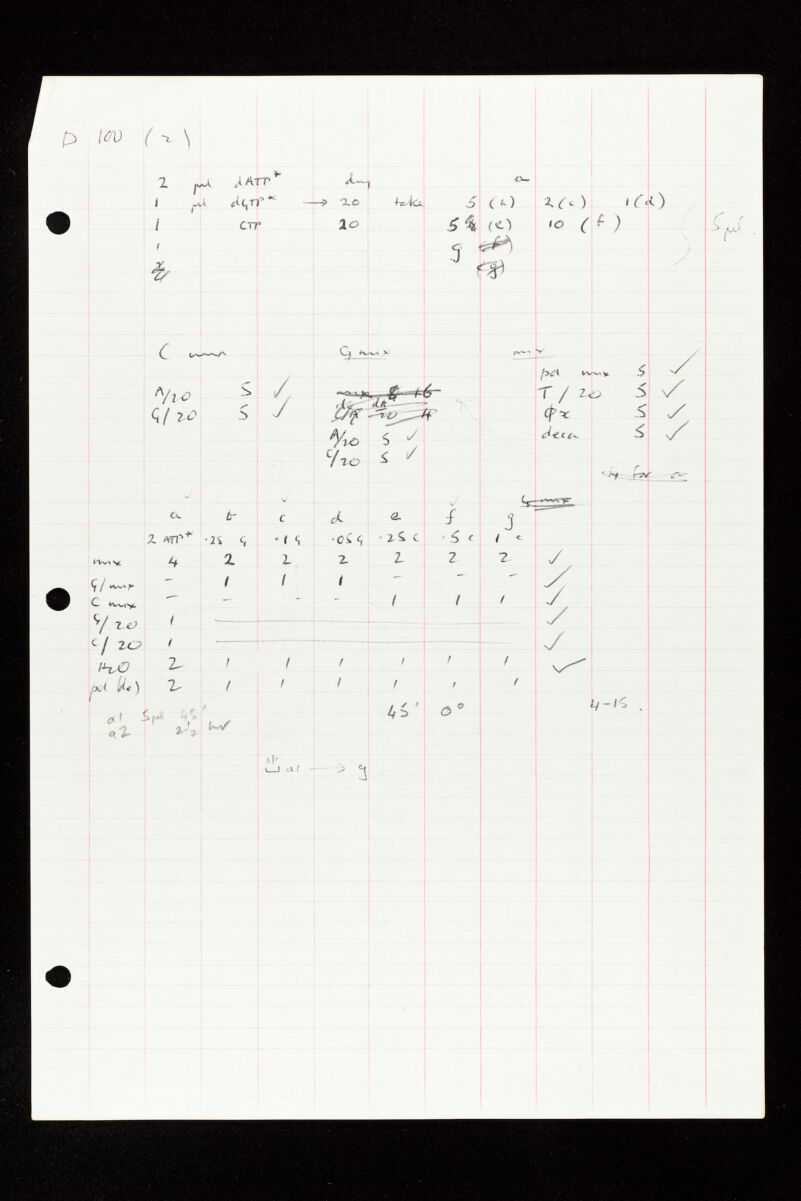 D 100 (2)
2 µl dATP* dry a
1 µl dGTP* → 20 take 5 (b) 2 (c) 1 (d)
1 CTP 20 5 (e) 10 (f) 5 µl
1 g
C mix G mix mix
pol mix 5 ✓
A/20 5 ✓ T/20 5 ✓
G/20 5 ✓ φx 5 ✓
A/20 5 ✓ deca 5 ✓
C/20 5 ✓
a b c d e f g
2 ATP* .25 G .1 G .05 G .25 C .5 C 1 C
mix 4 2 2 2 2 2 2 ✓
G/mix - 1 1 1 - - - ✓
C mix - - - - 1 1 1 ✓
G/20 1 ✓
C/20 1 ✓
H2O 2 1 1 1 1 1 1 ✓
pol 2 1 1 1 1 1 1
45' 0° 4-15.
a1 5 µl 45'
a2 2 1/2 hr
a1 → g